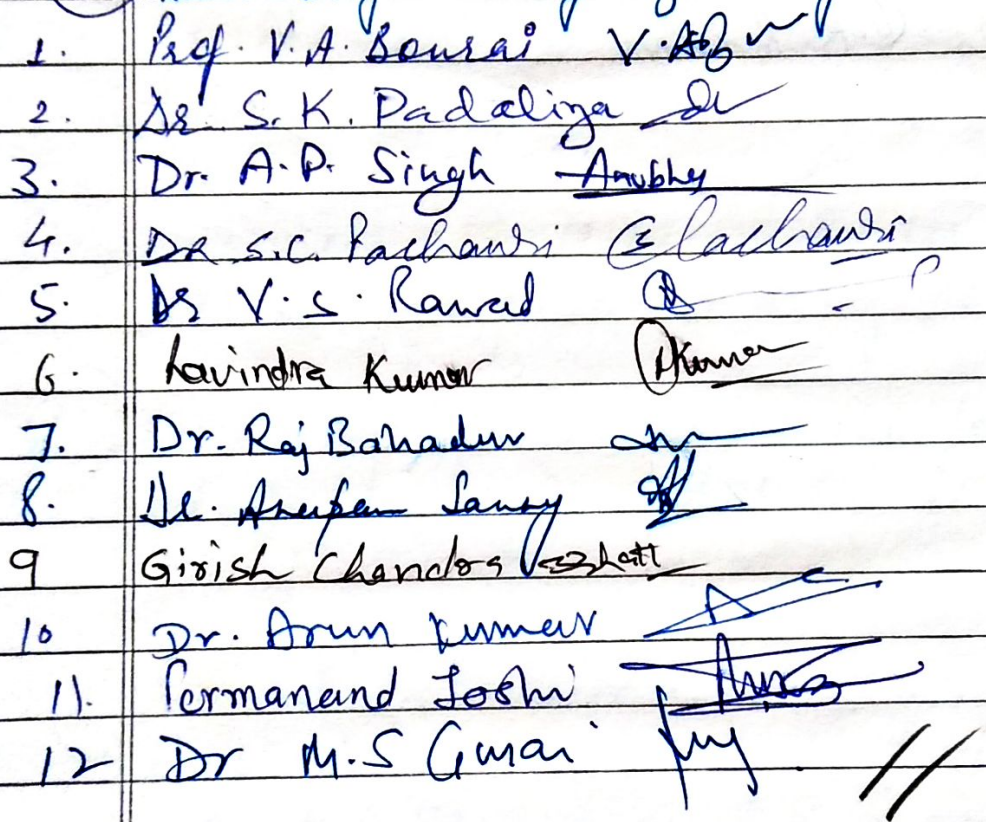 1. Prof. V.A. Bourai
2. Dr. S.K. Padaliya
3. Dr. A.P. Singh
4. DR S.C. Pachauri Pachauri
5. Dr V.S. Rawad
6. Ravindra Kumar Kumar
7. Dr. Raj Bahadur
8. Dr. Anupam
9 Girish Chandra
10 Dr. Arun Kumar
11. Permanand Joshi
12 Dr M.S Gusai